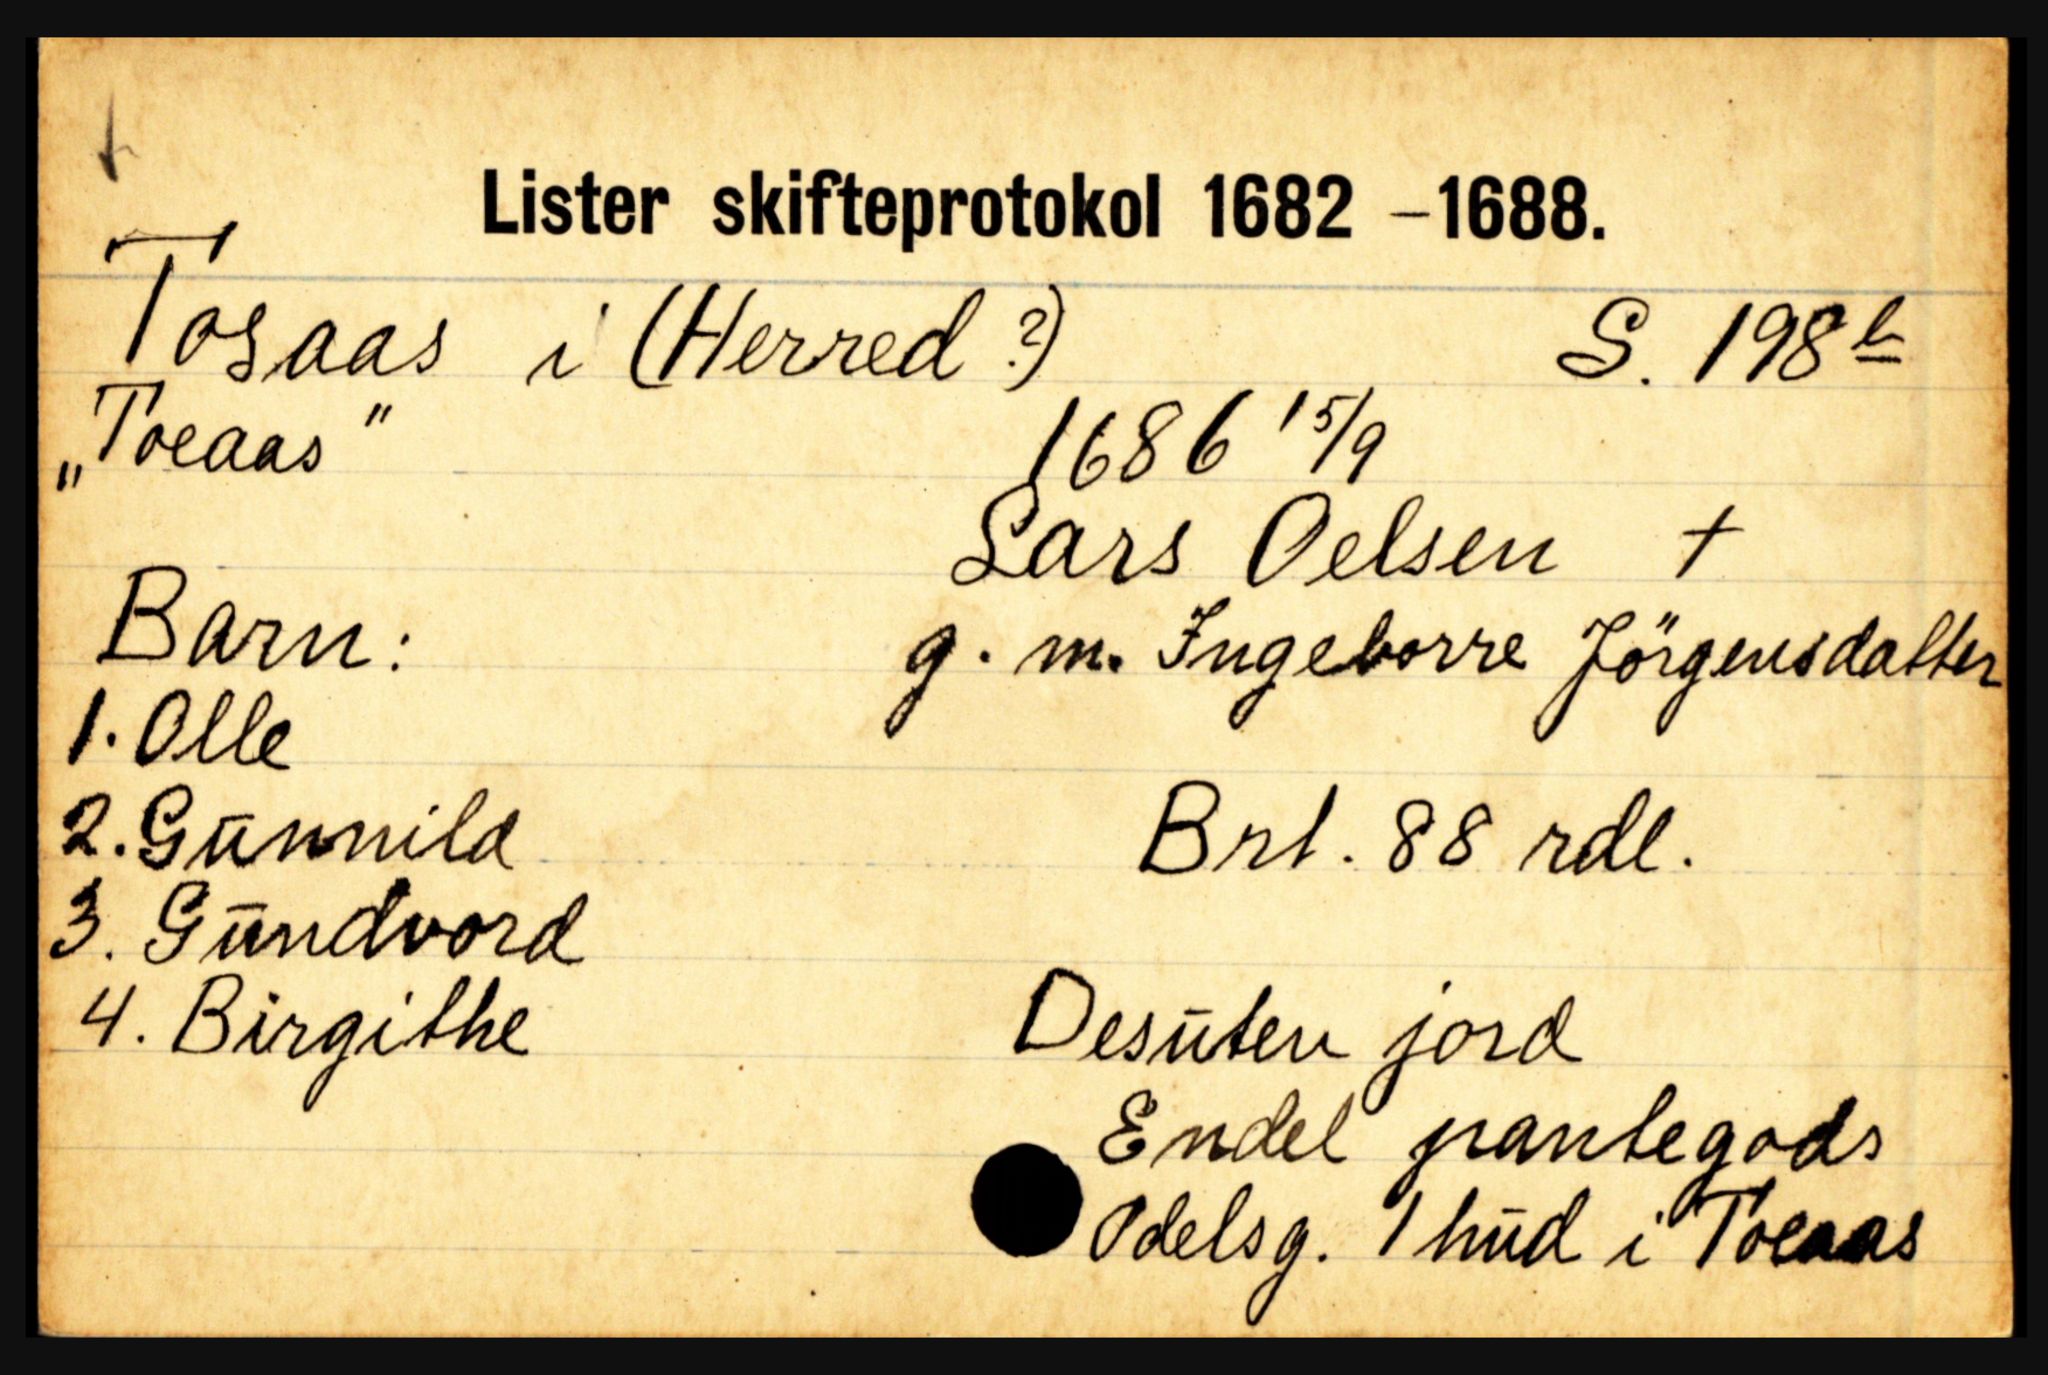 Lister skifteprotokol 1682 -1688.
Tosaas i (Herred ?) S. 198 b
„Toeaas" 1686 15/9
Lars Oelsen †
Barn: g. m. Ingeborre Jörgensdatter
1. Olle
2. Gūnnild Brt. 88 rdl.
3. Gūndvord
4. Birgithe Desūten jord
Endel pantegods
Odelsg. 1 hūd i Toeaas